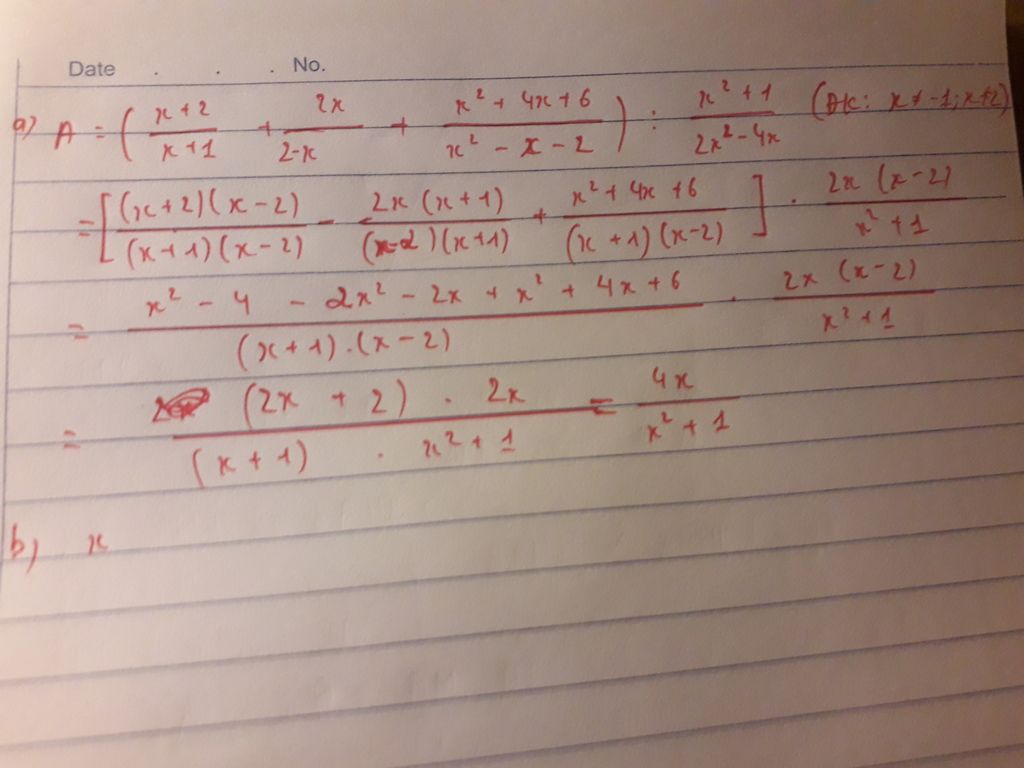 Date . . . No.
a) A = ( (x+2)/(x+1) + 2x/(2-x) + (x² + 4x + 6)/(x² - x - 2) ) : (x² + 1)/(2x² - 4x) (ĐK: x ≠ -1; x≠2)
= [ (x+2)(x-2)/(x+1)(x-2) - 2x(x+1)/(x-2)(x+1) + (x² + 4x + 6)/(x+1)(x-2) ] . 2x(x-2)/(x² + 1)
= (x² - 4 - 2x² - 2x + x² + 4x + 6)/((x+1).(x-2)) . 2x(x-2)/(x² + 1)
= (2x + 2) . 2x/(x+1) . x² + 1 = 4x/(x² + 1)
b) x